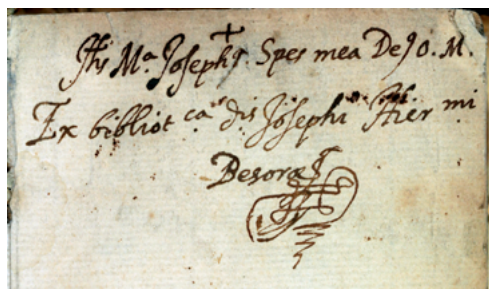 Jhs Mª. Joseph9. Spes mea De9 O. M.
Ex bibliot ca dis Josephi Hier mi
Besora